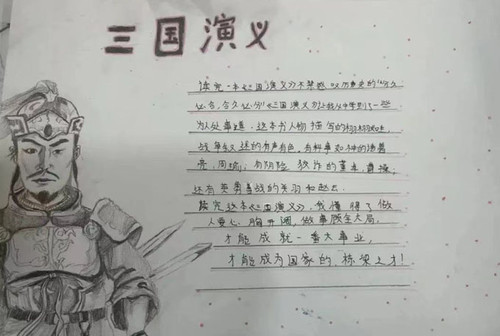 三国演义
读完一本《三国演义》不禁感叹历史的"分久
必合,合久必分"《三国演义》让我从中学到了一些
为人处事道,这本书人物描写的栩栩如生
战争叙述的有声有色,有料事如神的诸葛
亮,周瑜;有阴险狡诈的董卓,曹操;
还有英勇善战的关羽和赵云.
读完这本《三国演义》,我懂得了做
人要心胸开阔,做事顾全大局,
才能成就一番大事业,
才能成为国家的栋梁之才!